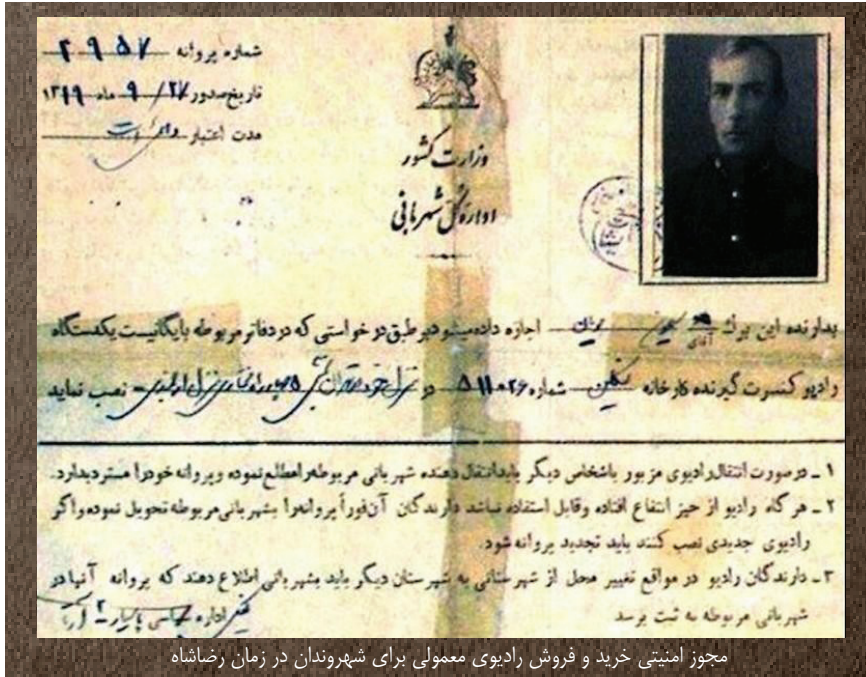 شماره پروانه ۲۹۵۷
تاریخ صدور ۲۷/ ۹ ماه ۱۳۱۹
مدت اعتبار
وزارت کشور
اداره کل شهربانی
بدارنده این برگ آقای اجازه داده میشود بر طبق درخواستی که در دفاتر مربوطه بایگانیست یکدستگاه
رادیو کنسرت گیرنده کارخانه شماره ۵۱۱۰۲۶ در منزل خود نصب نماید
۱ - در صورت انتقال رادیوی مزبور باشخاص دیگر باید انتقال دهنده شهربانی مربوطه را مطلع نموده و پروانه خود را مسترد بدارد.
۲ - هر گاه رادیو از حیز انتفاع افتاده و قابل استفاده نباشد دارندگان آن فوراً پروانه را بشهربانی مربوطه تحویل نموده و اگر
رادیوی جدیدی نصب کنند باید تجدید پروانه شود.
۳ - دارندگان رادیو در مواقع تغییر محل از شهرستانی به شهرستان دیگر باید بشهربانی اطلاع دهند که پروانه آنها در
شهربانی مربوطه به ثبت برسد
اداره سیاسی
مجوز امنیتی خرید و فروش رادیوی معمولی برای شهروندان در زمان رضاشاه